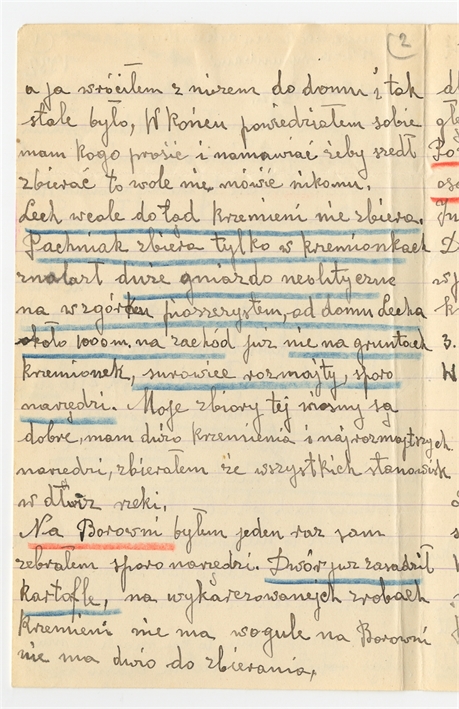 2
a ja wróciłem z niczem do domu i tak
stale było, W końcu powiedziałem sobie
mam kogo prosić i namawiać żeby szedł
zbierać to wole nie mówić nikomu.
Lech wcale dotąd krzemieni nie zbiera.
Pachniak zbiera tylko w krzemionkach
znalazł duże gniazdo neolityczne
na wzgórzu piaszczystem, od domu Lecha
około 1000 m. na zachód już nie na gruntach
krzemionek, surowiec rozmajty, sporo
narzędzi. Moje zbiory tej wiosny są
dobre, mam dużo krzemienia i najrozmajtszych
narzędzi, zbierałem ze wszystkich stanowisk
w dłuż rzeki.
Na Borowni byłem jeden raz sam
zebrałem sporo narzędzi. Dwór już zasadził
kartofle, na wykarczowanych zrobach
krzemieni nie ma wogule na Borowni
nie ma dużo do zbierania,